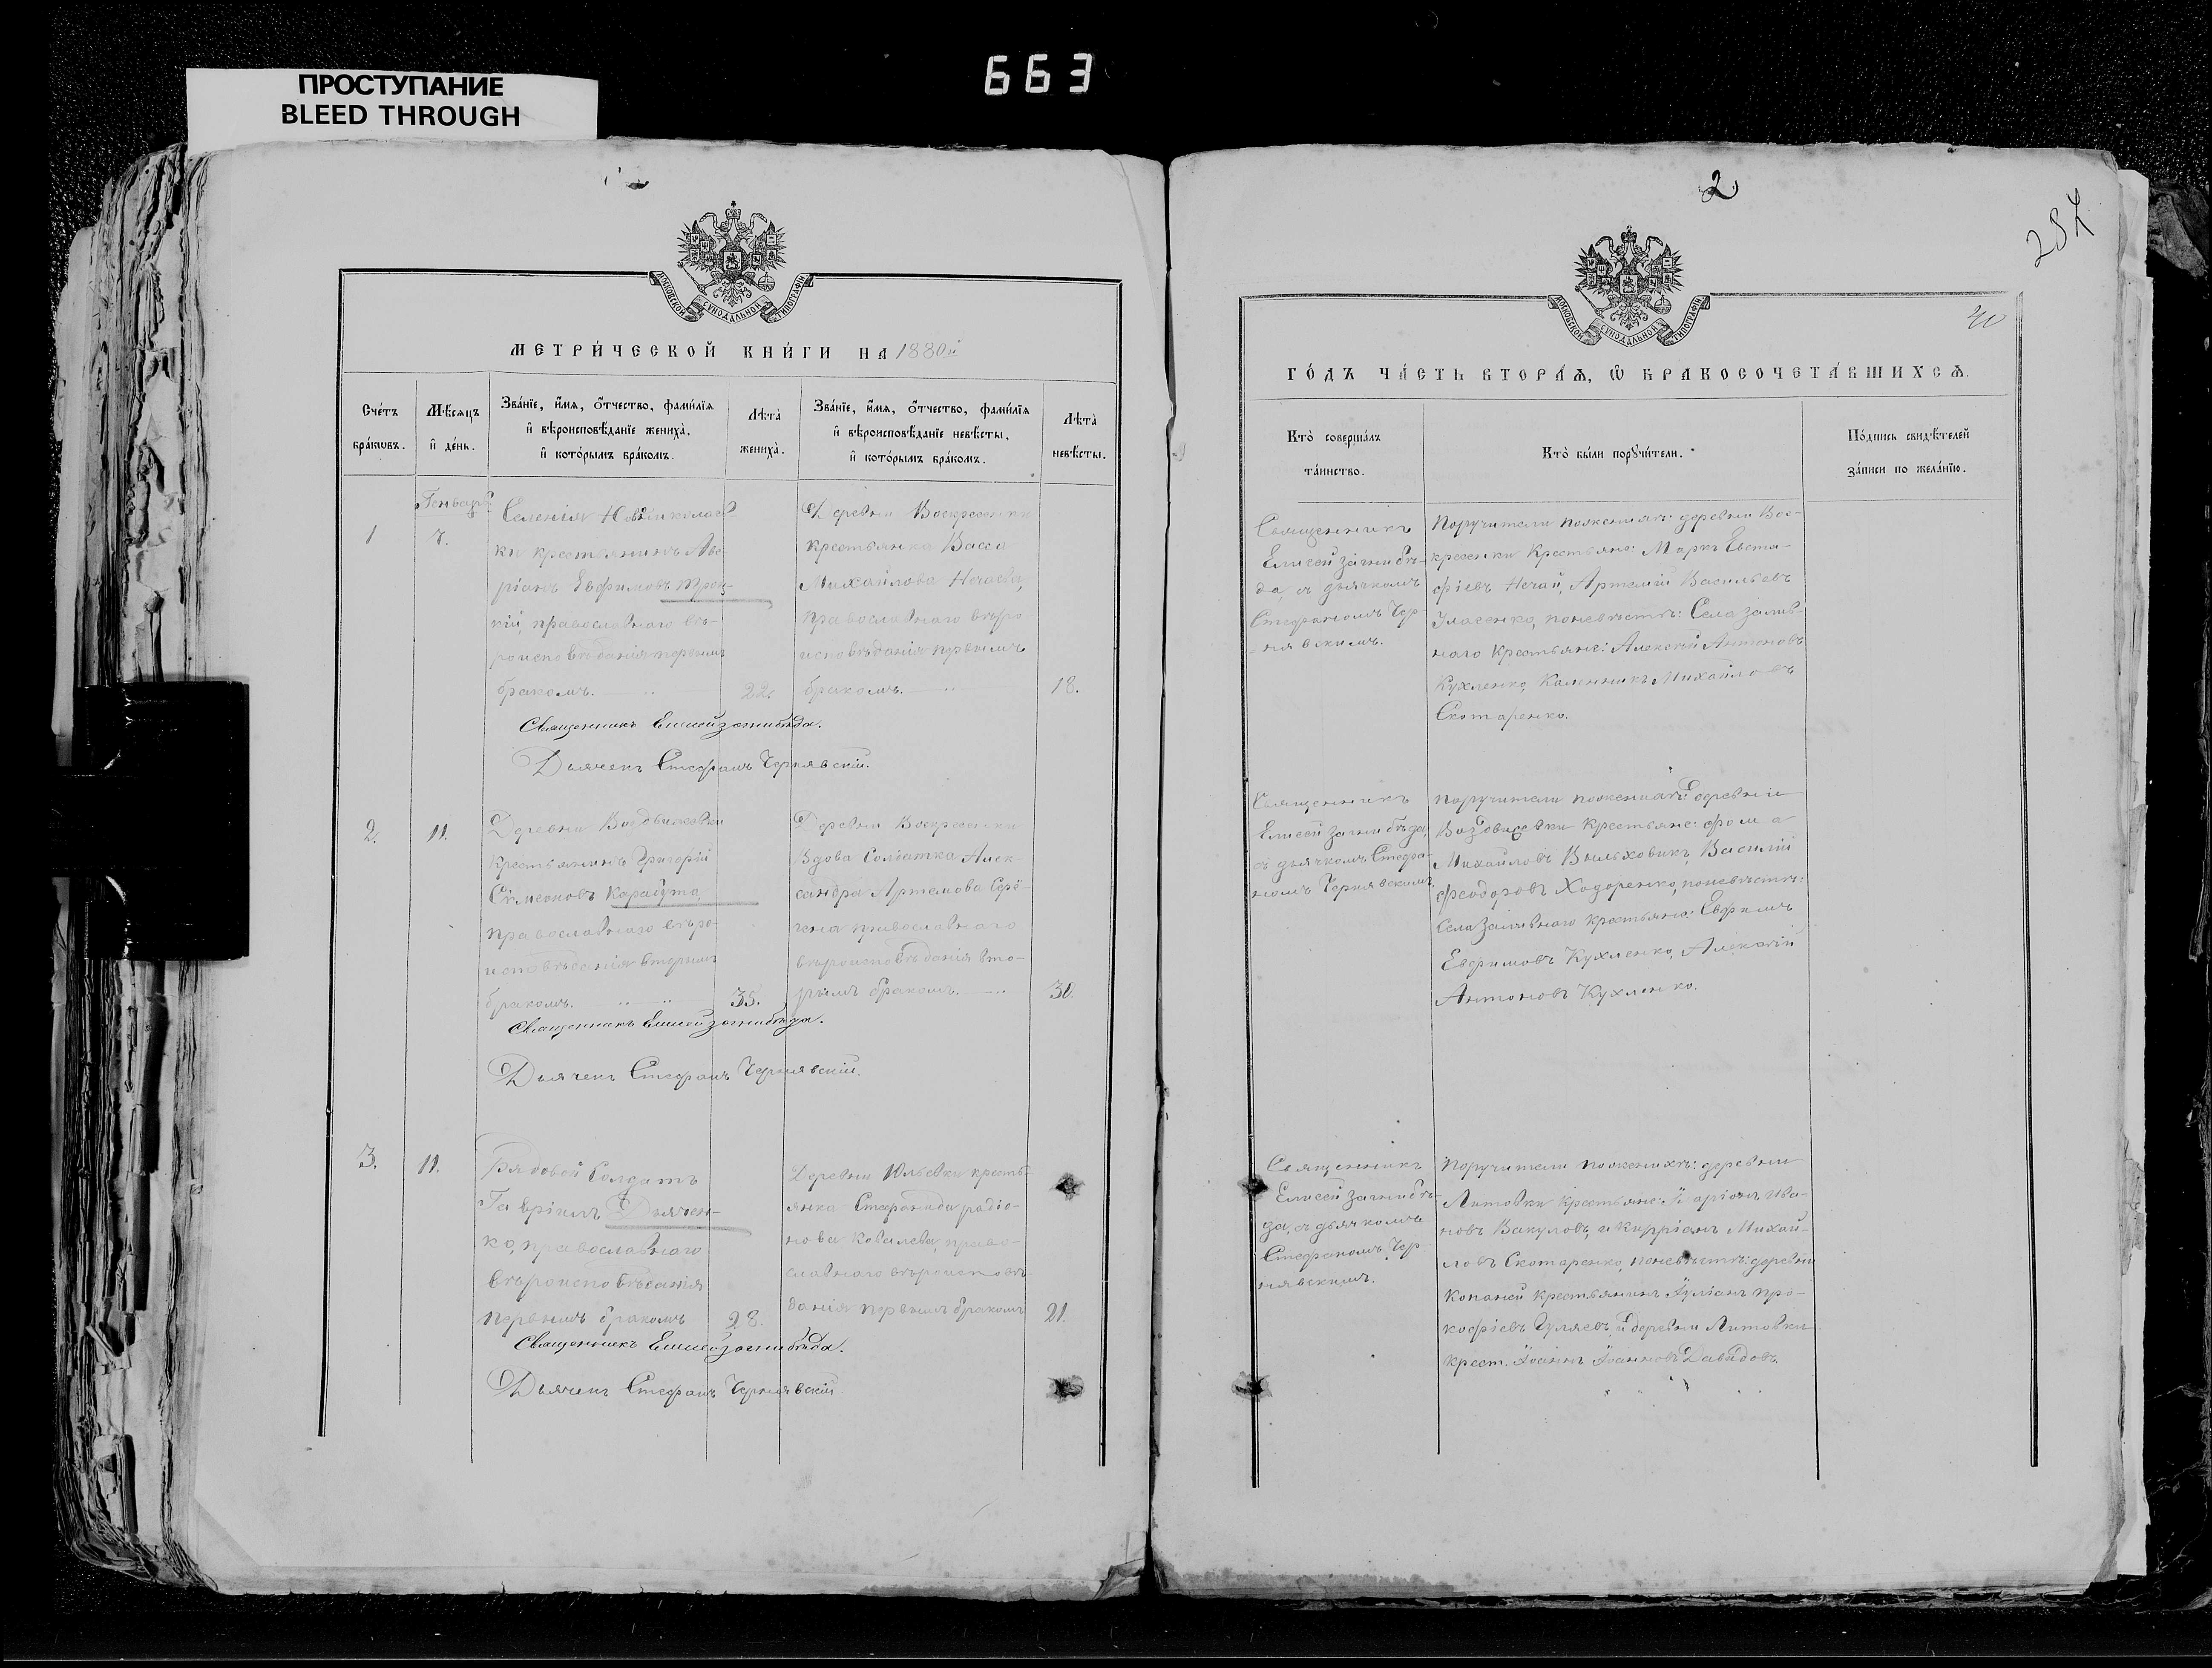 ПРОСТУПАНИЕ
BLEED THROUGH
663
МОСКОВСКОЙ СѴНОДАЛЬНОЙ ТИПОГРАФІИ
МЕТРИ́ЧЕСКОЙ КНИ́ГИ НА 1880й
Сче́тъ бра́ковъ.
Мѣ́сяцъ и҆ де́нь.
Зва́нїе, и҆́мя, ѻ҆́тчество, фамилїя
и҆ вѣроисповѣ́данїе жениха̀,
и҆ кото́рымъ бра́комъ.
Лѣта̀ жениха̀.
Зва́нїе, и҆́мя, ѻ҆́тчество, фамилїя
и҆ вѣроисповѣ́данїе невѣ́сты,
и҆ кото́рымъ бра́комъ.
Лѣта̀ невѣ́сты.
1
Генварь
7.
Селенія Новониколаев-
ки крестьянинъ Аве-
ріанъ Евфимовъ
кій, православнаго вѣ-
роисповѣданія первымъ
бракомъ.
22.
Деревни Воскресенки
крестьянка Васса
Михайлова Нечаева,
православнаго вѣро-
исповѣданія первымъ
бракомъ.
18.
Священникъ Елисей Загнибѣда.
Дьячекъ Стефанъ Чернявскій.
2.
11.
Деревни Воздвижевки
крестьянинъ Григорій
Сѵмеоновъ Карабута,
православнаго вѣро-
исповѣданія вторымъ
бракомъ.
35.
Деревни Воскресенки
Вдова Солдатка Алек-
сандра Артемова
православнаго
вѣроисповѣданія вто-
рымъ бракомъ.
30.
Священникъ Елисей Загнибѣда.
Дьячекъ Стефанъ Чернявскій.
3.
11.
Рядовой Солдатъ
Гавріилъ Дьячен-
ко, православнаго
вѣроисповѣданія
первымъ бракомъ
28.
Деревни Юльевки кресть-
янка Стефанида Радіо-
нова Ковалева, право-
славнаго вѣроисповѣ-
данія первымъ бракомъ
21.
Священникъ Елисей Загнибѣда.
Дьячекъ Стефанъ Чернявскій.
2
287
40
МОСКОВСКОЙ СѴНОДАЛЬНОЙ ТИПОГРАФІИ
ГО́ДЪ ЧА́СТЬ ВТОРА́Ѧ, Ѡ҆ БРАКОСОЧЕТА́ВШИХСѦ.
Кто̀ соверша́лъ
та́инство.
Кто̀ бы́ли порꙋчи́тели.
По́дпись свидѣ́телей
за́писи по жела́нїю.
Священникъ
Елисей Загнибѣ-
да, съ дьячкомъ
Стефаномъ Чер-
нявскимъ.
Поручители по женихѣ: деревни Вос-
кресенки Крестьяне: Маркъ Евста-
фіевъ Нечай, Артемій Васильевъ
Уласенко, по невѣстѣ: Села Залив-
наго Крестьяне: Алексѣй Антоновъ
Кухленко, Каленникъ Михайловъ
Скотаренко.
Священникъ
Елисей Загнибѣда,
съ дьячкомъ Стефа-
номъ Чернявскимъ.
Поручители по женихѣ: деревни
Воздвижевки Крестьяне: Фома
Михайловъ Выльховикъ, Василій
Феодоровъ Ходоренко, по невѣстѣ:
Села Заливнаго крестьяне: Евфимъ
Евфимовъ Кухленко, Алексѣй
Антоновъ Кухленко.
Священникъ
Елисей Загнибѣ-
да, съ дьячкомъ
Стефаномъ Чер-
нявскимъ.
Поручители по женихѣ: деревни
Литовки Крестьяне: Иларіонъ Ива-
новъ Вакуловъ, и Кипріанъ Михай-
ловъ Скотаренко, по невѣстѣ: деревни
Копаней крестьянинъ Іуліанъ Про-
кофіевъ Гуляевъ, и деревни Литовки
крест. Іоаннъ Іоанновъ Давидовъ.